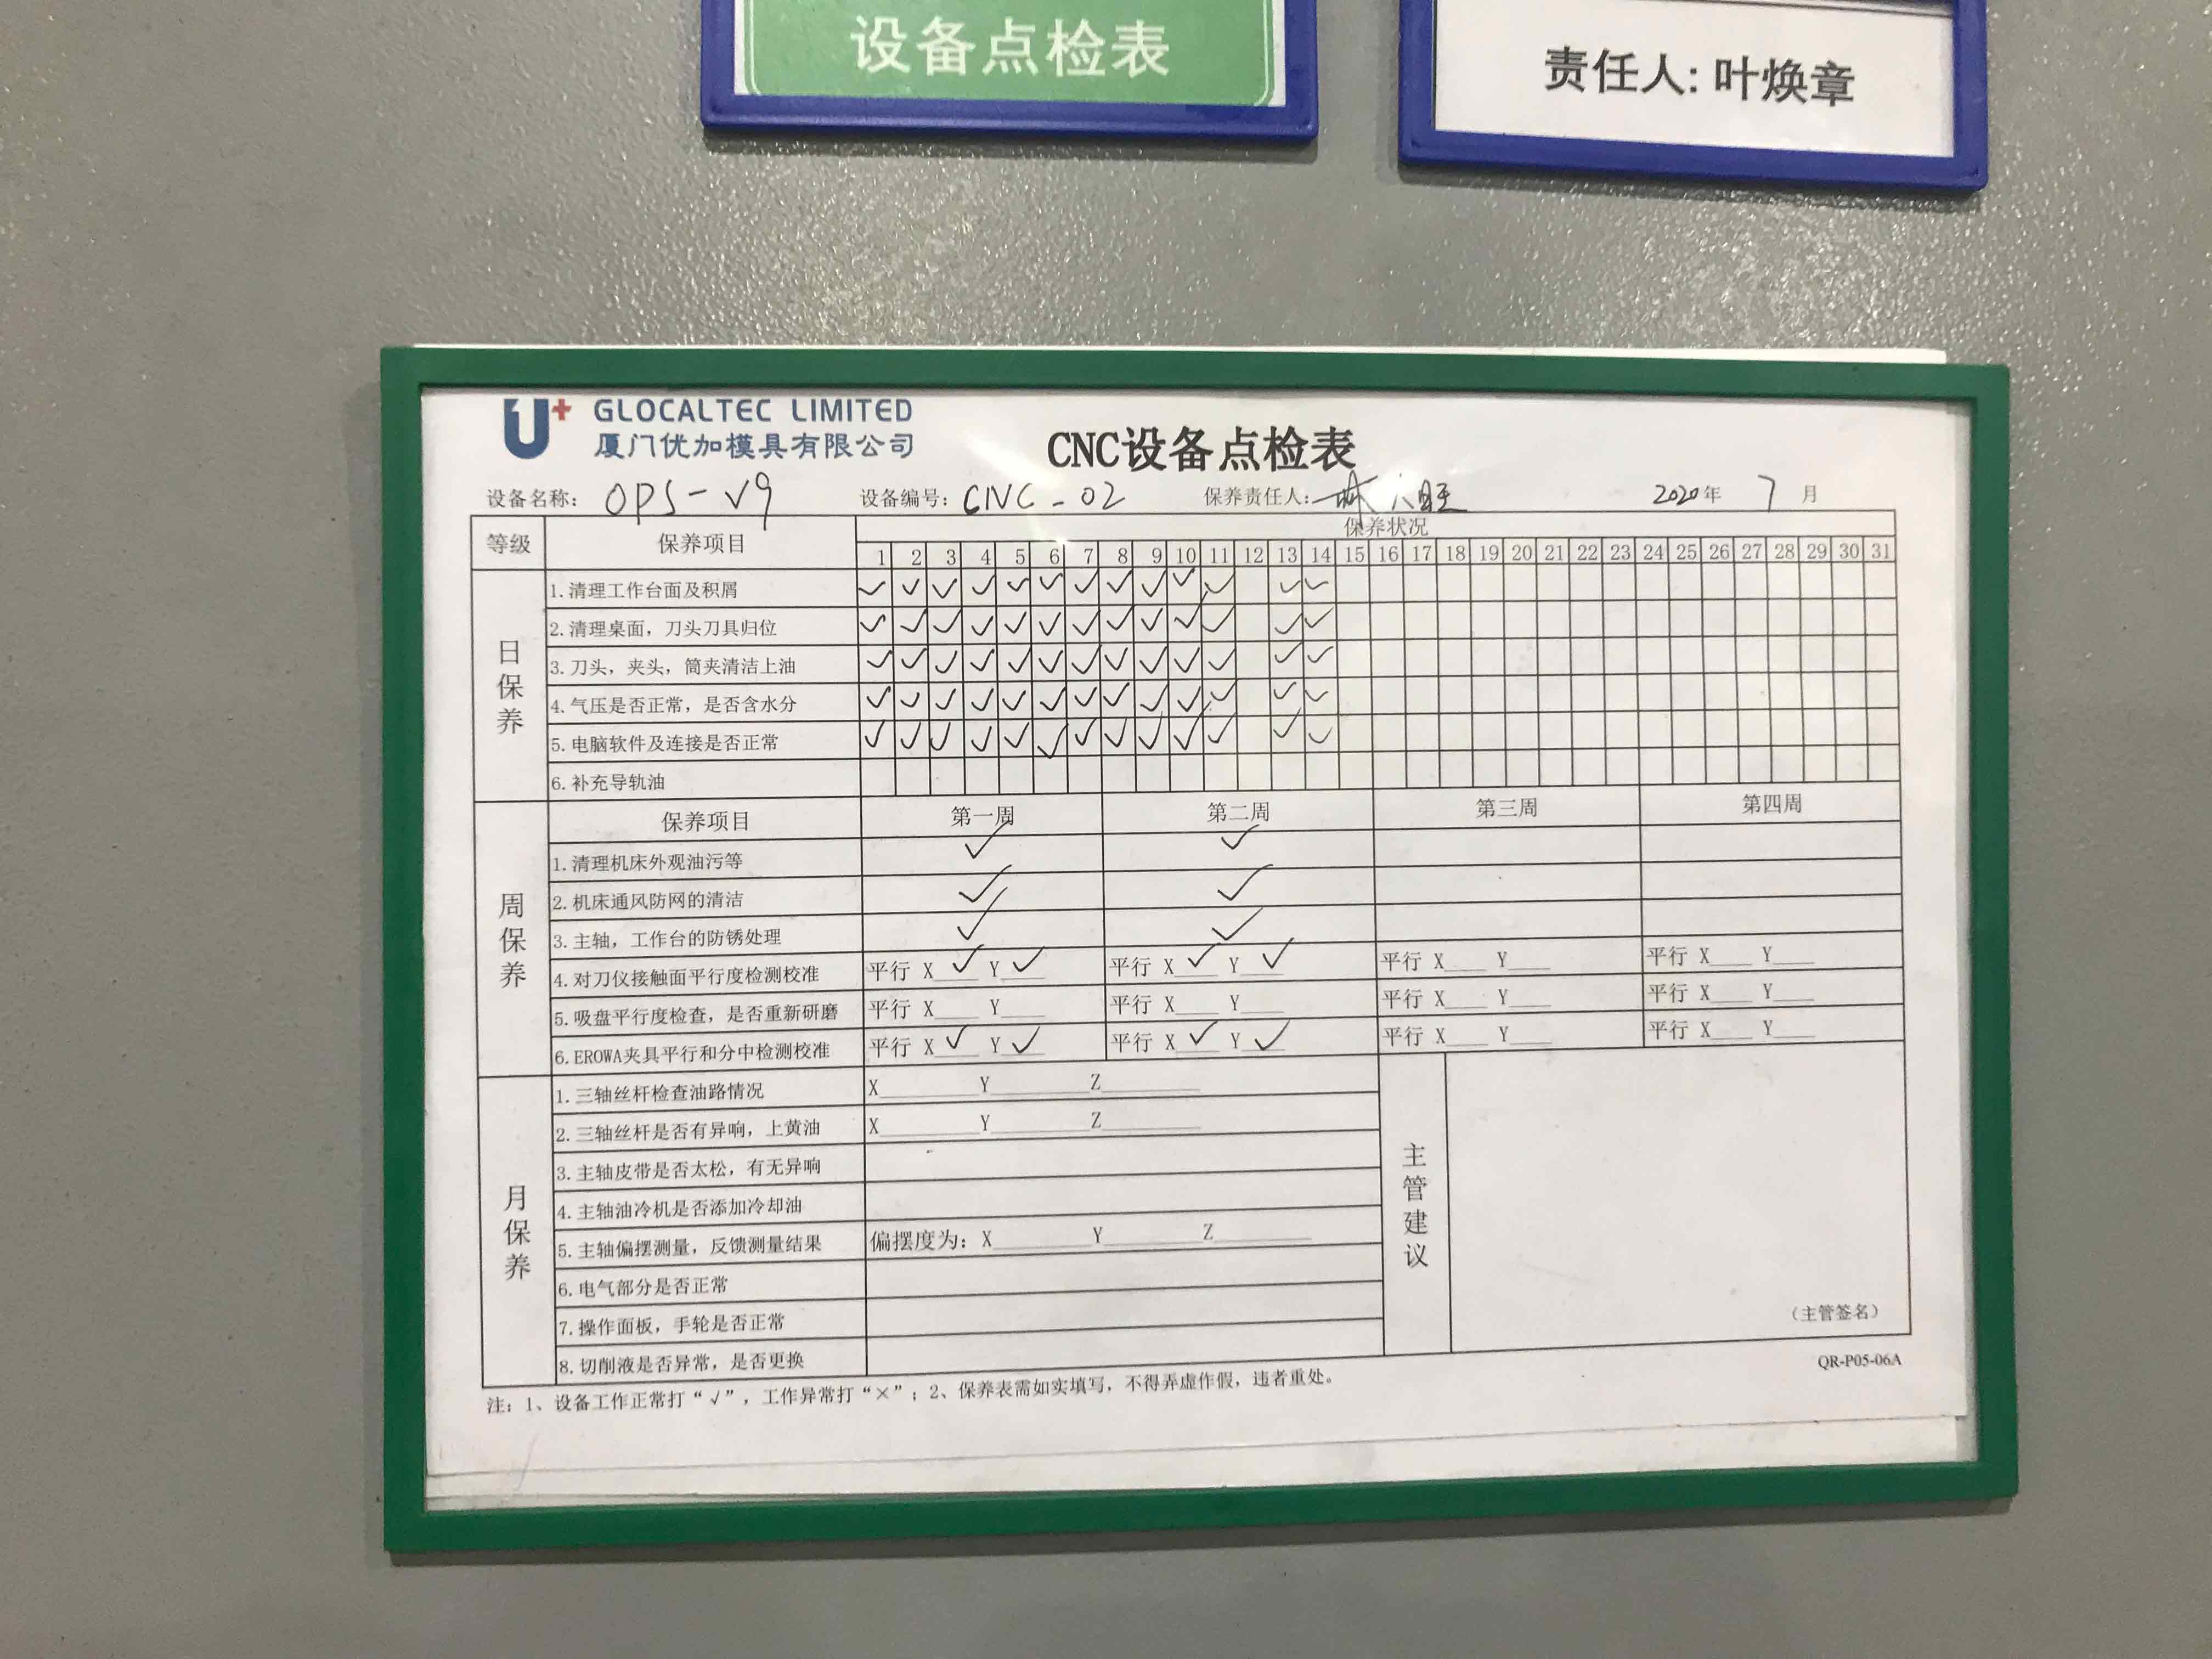 设备点检表
责任人: 叶焕章
U+ GLOCALTEC LIMITED
厦门优加模具有限公司
CNC设备点检表
设备名称: OPS-V9 设备编号: CNC-02 保养责任人: 2020年 7 月
等级 保养项目 保养状况
1 2 3 4 5 6 7 8 9 10 11 12 13 14 15 16 17 18 19 20 21 22 23 24 25 26 27 28 29 30 31
日保养
1.清理工作台面及积屑 ✓ ✓ ✓ ✓ ✓ ✓ ✓ ✓ ✓ ✓ ✓ ✓ ✓
2.清理桌面，刀头刀具归位 ✓ ✓ ✓ ✓ ✓ ✓ ✓ ✓ ✓ ✓ ✓ ✓ ✓
3.刀头，夹头，筒夹清洁上油 ✓ ✓ ✓ ✓ ✓ ✓ ✓ ✓ ✓ ✓ ✓ ✓ ✓
4.气压是否正常，是否含水分 ✓ ✓ ✓ ✓ ✓ ✓ ✓ ✓ ✓ ✓ ✓ ✓ ✓
5.电脑软件及连接是否正常 ✓ ✓ ✓ ✓ ✓ ✓ ✓ ✓ ✓ ✓ ✓ ✓ ✓
6.补充导轨油
周保养
保养项目 第一周 第二周 第三周 第四周
1.清理机床外观油污等 ✓ ✓
2.机床通风防网的清洁 ✓ ✓
3.主轴，工作台的防锈处理 ✓ ✓
4.对刀仪接触面平行度检测校准 平行 X ✓ Y ✓ 平行 X ✓ Y ✓ 平行 X____ Y____ 平行 X____ Y____
5.吸盘平行度检查，是否重新研磨 平行 X____ Y____ 平行 X____ Y____ 平行 X____ Y____ 平行 X____ Y____
6.EROWA夹具平行和分中检测校准 平行 X ✓ Y ✓ 平行 X ✓ Y ✓ 平行 X____ Y____ 平行 X____ Y____
月保养
1.三轴丝杆检查油路情况 X________ Y________ Z________
2.三轴丝杆是否有异响，上黄油 X________ Y________ Z________
3.主轴皮带是否太松，有无异响
4.主轴油冷机是否添加冷却油
5.主轴偏摆测量，反馈测量结果 偏摆度为: X________ Y________ Z________
6.电气部分是否正常
7.操作面板，手轮是否正常
8.切削液是否异常，是否更换
主管建议
（主管签名）
QR-P05-06A
注: 1、设备工作正常打“√”，工作异常打“×”; 2、保养表需如实填写，不得弄虚作假，违者重处。